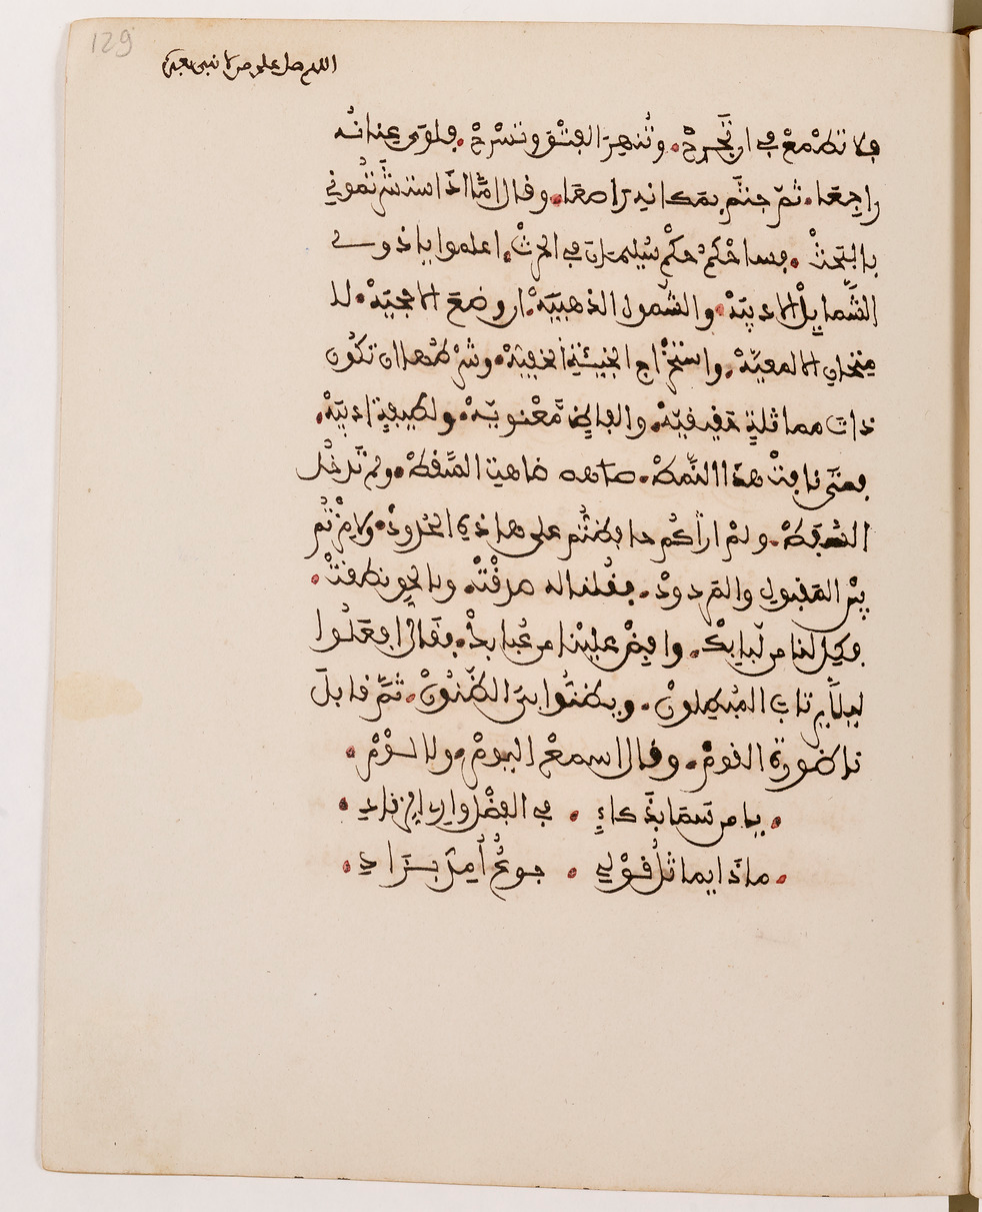 129
اللهم صل على من لا نبي بعده
فلا تطمع في ان تجرح. وتنهر الفتق وتسرح. فلوى عنانه
راجعا. ثم جثم بمكانه راصعا. وقال امّا اذا استشرتموني
بالبحث. فساحكم حكم سليمان في الحرث. اعلموا يا ذوي
الشمايل الادبيّة. والشمول الذهبيّة. ان وضع الاحجيّة. لا
متحان الالمعيّة. واستخراج الخبيئة الخفيّة. وشرطها ان تكون
ذات مماثلة حقيقيّة. والفاظ معنويّة. ولطيفة ادبيّة.
فمتى نافت هذا النمط. ضاهت السقط. ولم تدخل
السفط. ولم اراكم حافظتم على هاذه الحدود. ولا مزتم
بين المقبول والمردود. فقلنا له صدقت. وبالحق نطقت.
فكل لنا من لبابك. وافض علينا من عبابك. فقال افعل
ليلا يرتاب المبطلون. ويظنّوا بي الظنون. ثمّ قابل
ناظورة القوم. وقال اسمع اليوم. ولا لوم.
يا من سما بذكاء. في الفضل واري الزناد.
ماذا يماثل قولي. جوع أمدّ بزاد.